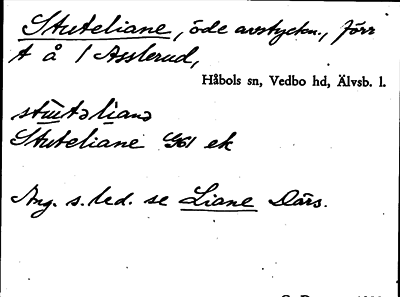 Stuteliane, öde avstyckn., förr
t å / Asslerud,
Håbols sn, Vedbo hd, Älvsb. l.
stu̅təlianə
Stuteliane G61 ek
Ang. s.led. se Liane Därs.